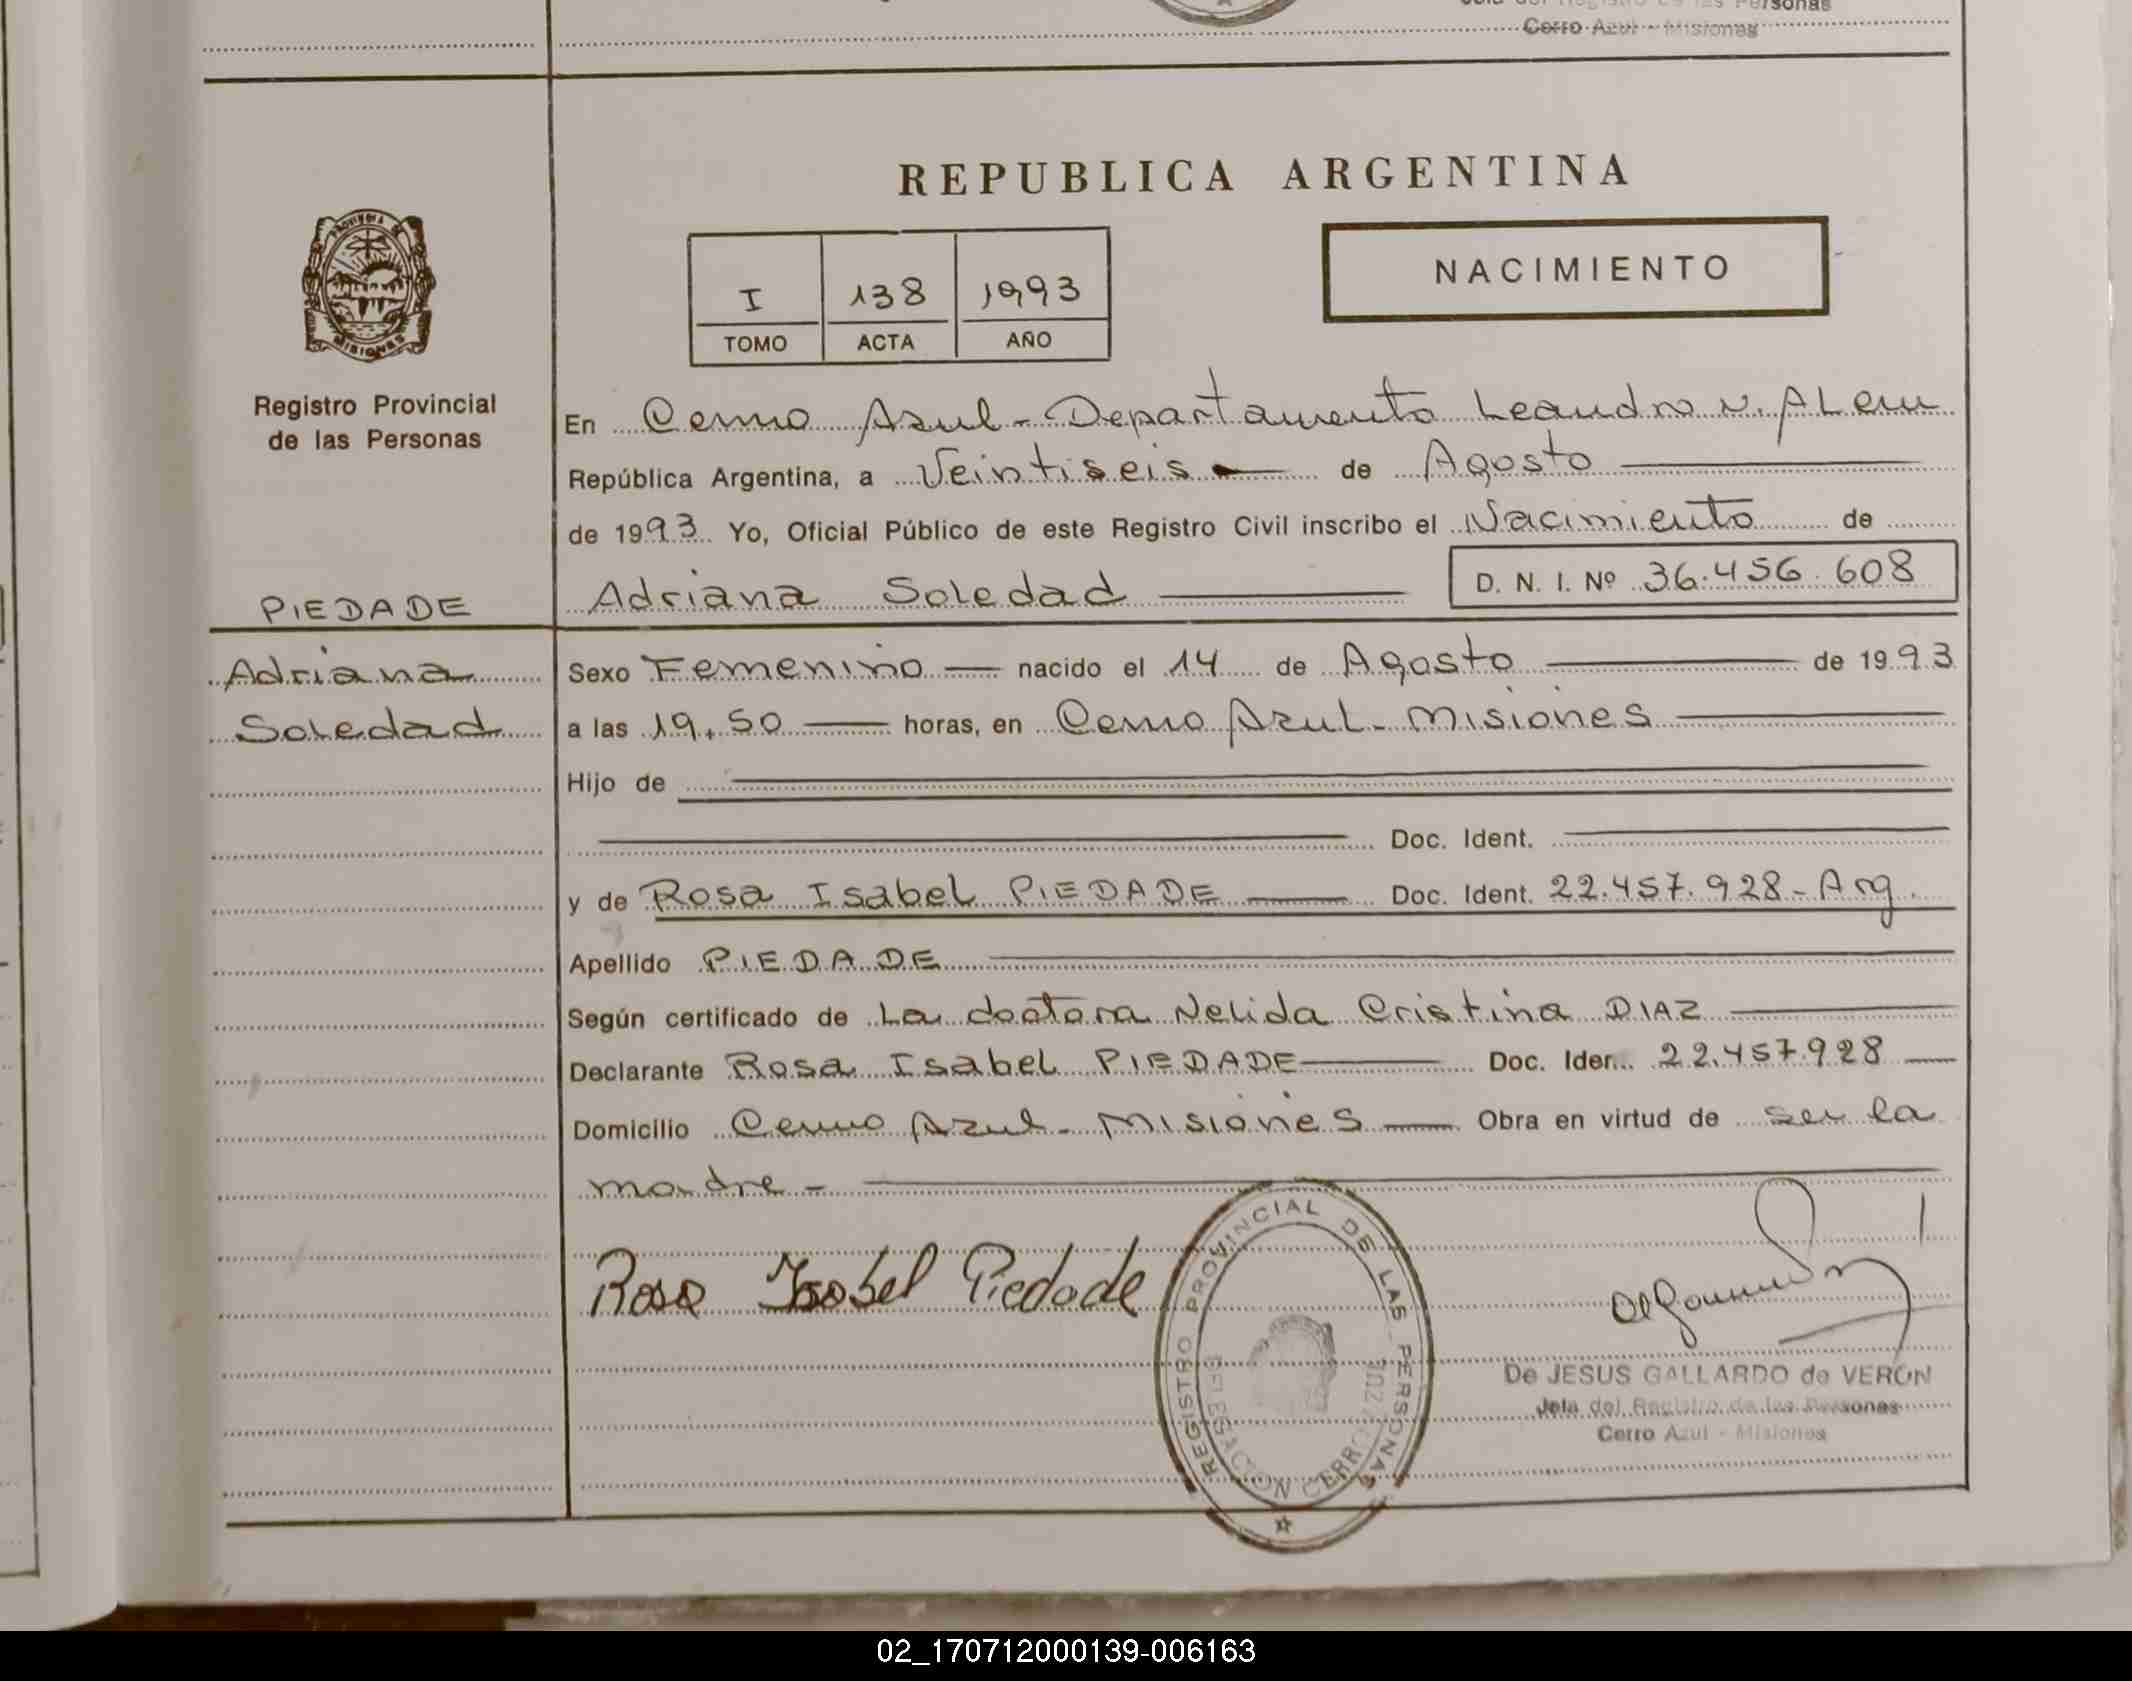 Cerro Azul - Misiones
REPUBLICA ARGENTINA
NACIMIENTO
I 138 1993
TOMO ACTA AÑO
PROVINCIA DE
MISIONES
Registro Provincial
de las Personas
PIEDADE
Adriana
Soledad
En Cerro Azul - Departamento Leandro N. ALem
República Argentina, a Veintiseis de Agosto
de 1993 Yo, Oficial Público de este Registro Civil inscribo el Nacimiento de
Adriana Soledad D. N. I. Nº 36.456.608
Sexo Femenino nacido el 14 de Agosto de 1993
a las 19,50 horas, en Cerro Azul - Misiones
Hijo de
Doc. Ident.
y de Rosa Isabel PIEDADE Doc. Ident. 22.457.928 - Arg.
Apellido PIEDADE
Según certificado de La doctora Nelida Cristina DIAZ
Declarante Rosa Isabel PIEDADE Doc. Iden. 22.457.928
Domicilio Cerro Azul - Misiones Obra en virtud de ser la
madre -
Rosa Isabel Piedade
REGISTRO PROVINCIAL DE LAS PERSONAS
De JESUS GALLARDO de VERON
Jefa del Registro de las Personas
Cerro Azul - Misiones
02_170712000139-006163